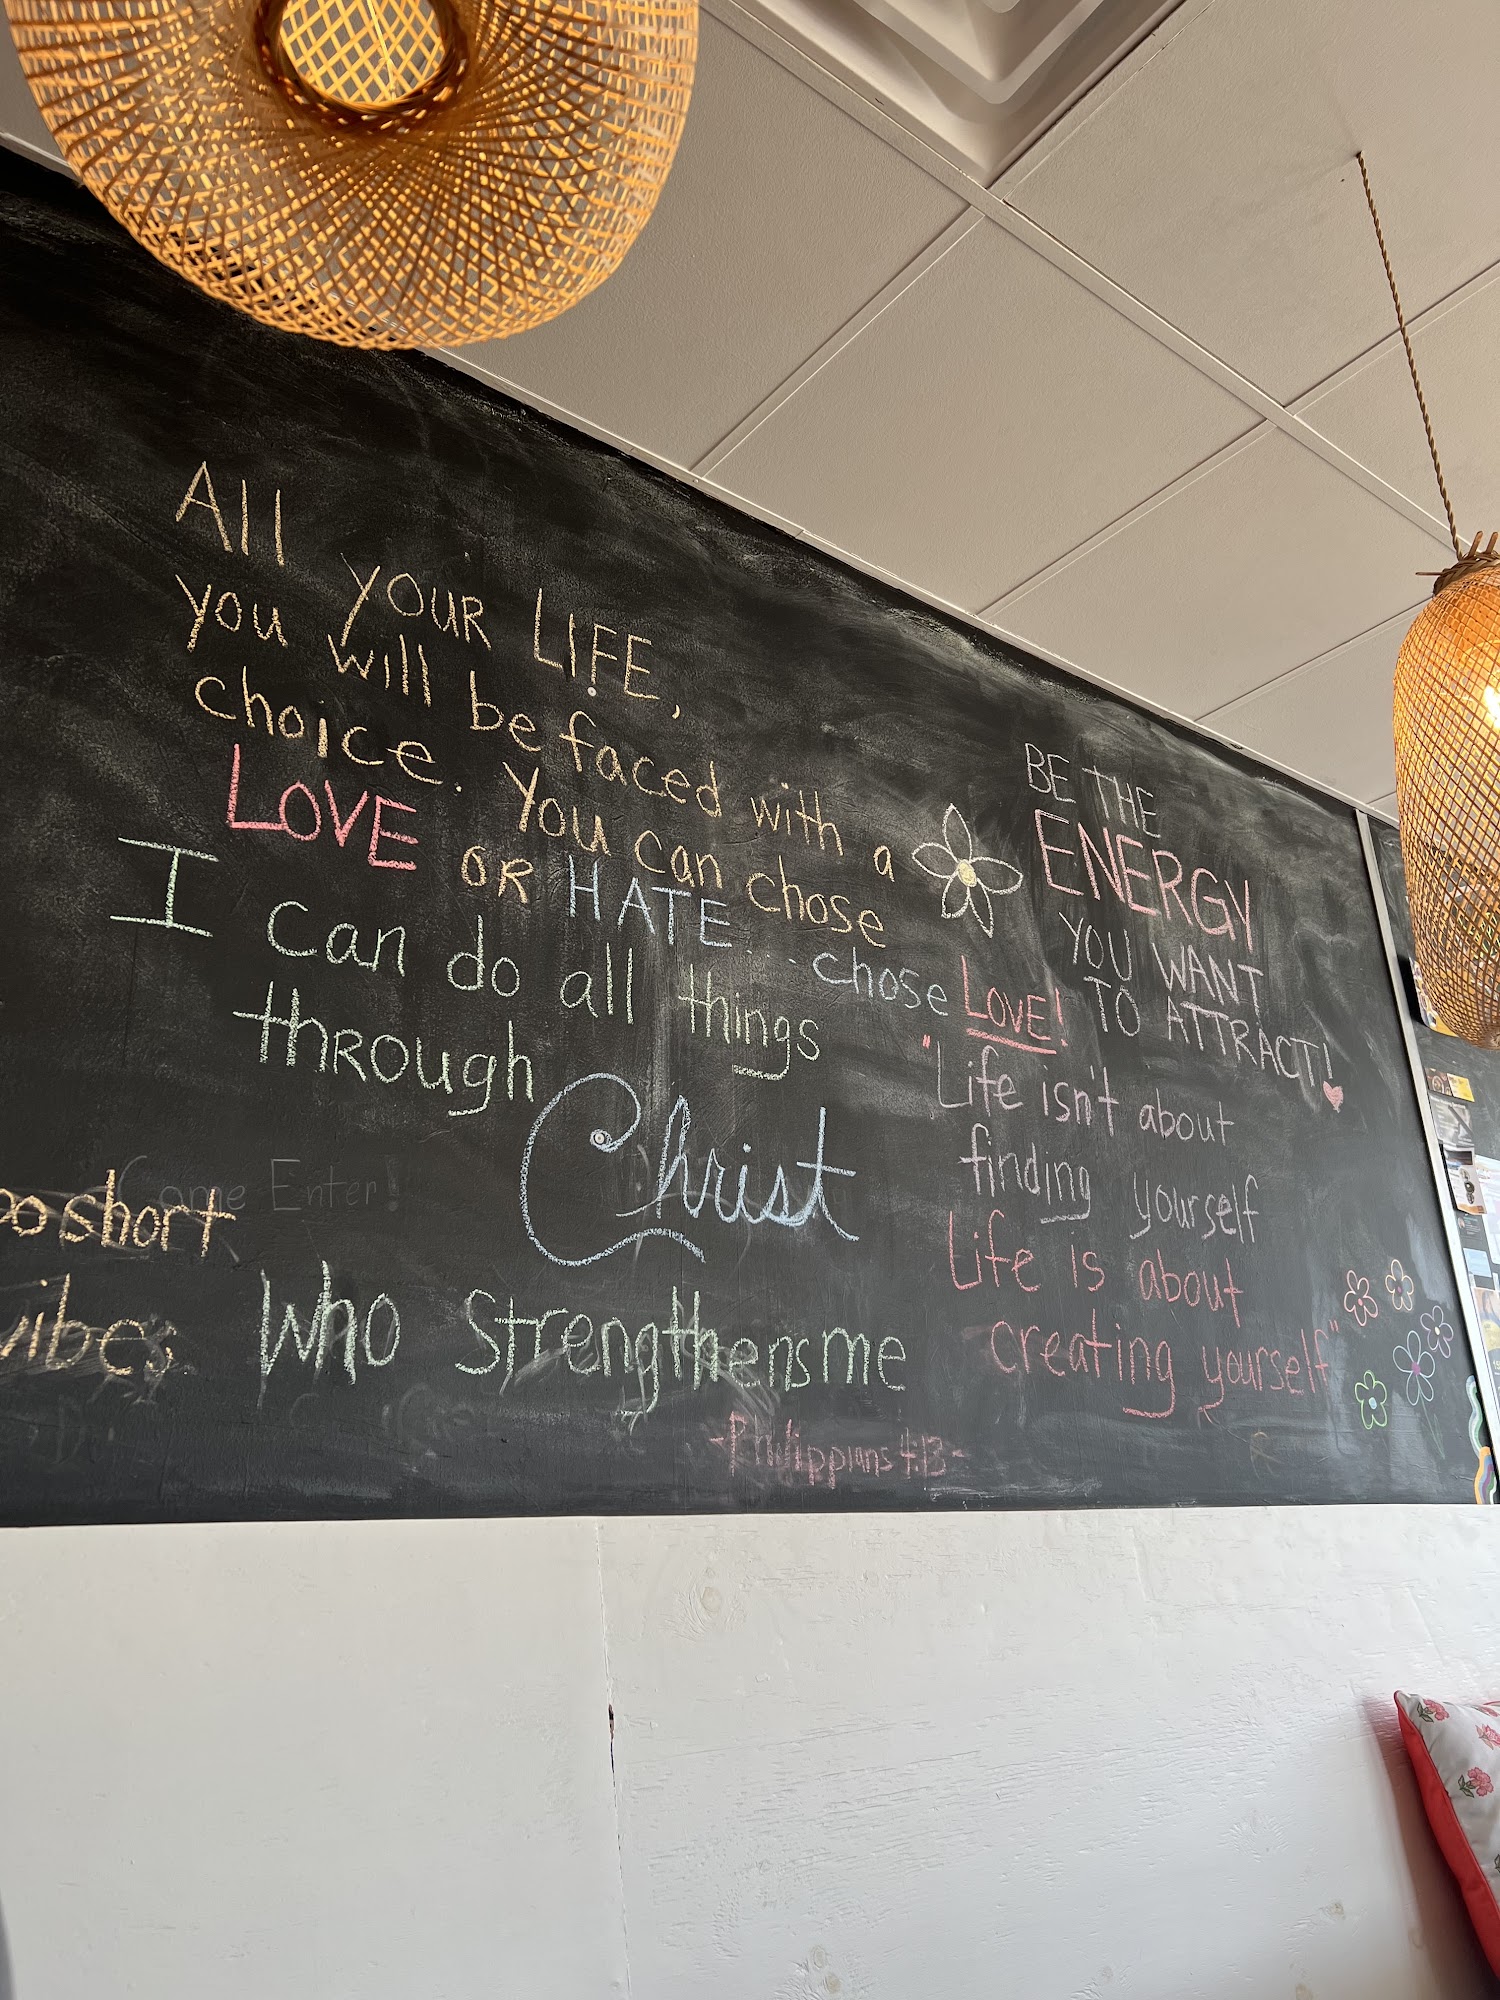 All YOUR LIFE,
you will be faced with a
choice. You can chose
LOVE OR HATE... chose LOVE!
I can do all things
through Christ
Who Strengthens me
-Philippians 4:13-
Come Enter!
short
vibes
BE THE
ENERGY
YOU WANT
TO ATTRACT!
"Life isn't about
finding yourself
Life is about
creating yourself"